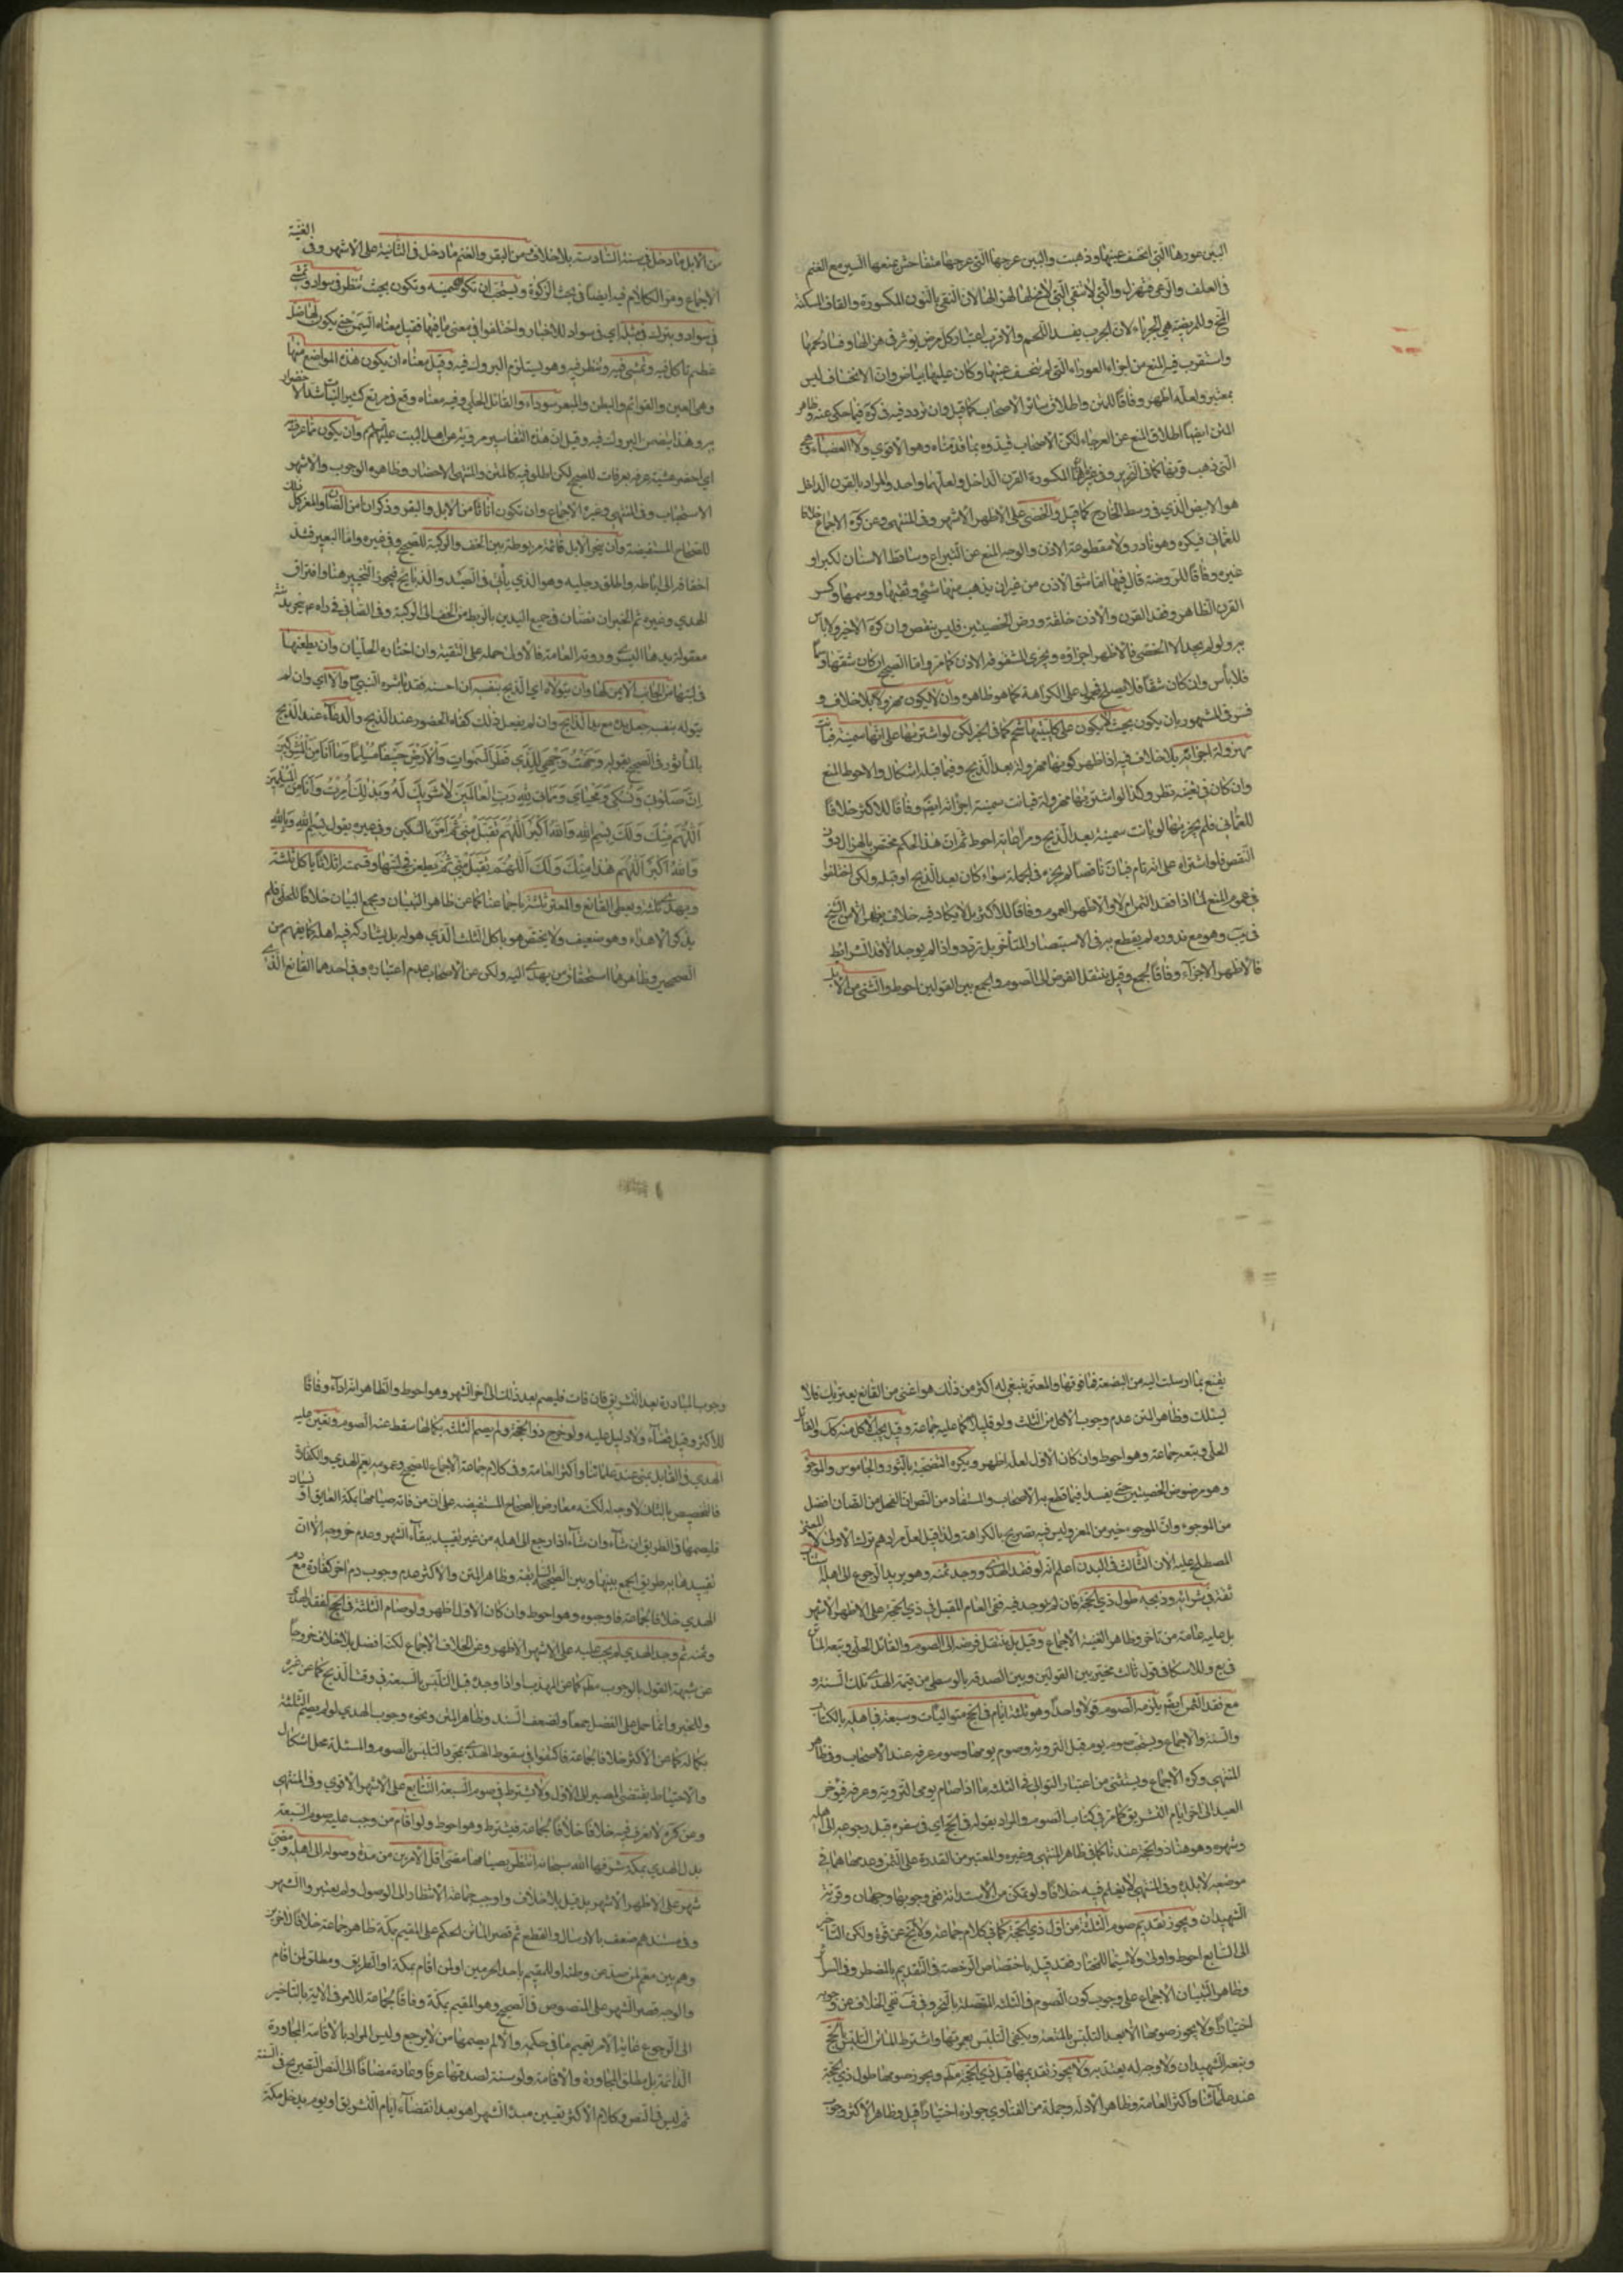 البين عورها الّتي انخسف عينها وذهبت والبين عرجها الّتي عرجها متفاحش يمنعها السير مع الغنم
في العلف والرعي فتهزل والّتي لا تنقى الّتي لا مخ لها لهزالها لان النقى بالنون المكسورة والقاف المسكنة
المخ والمريضة هي الجرباء لان الجرب يفسد اللحم والاقرب اعتبار كل مرض يؤثر في هزالها وفساد لحمها
واستقرب في المنع من اجزاء العوراء التي لم تنخسف عينها وكان عليها بياض وان الانخساف ليس
بمعتبر ولعله اظهر وفاقا للمتن واطلاق سائر الاصحاب كما قيل وان تردد فيه في كره فيما حكى عنه وظاهر
المتن ايضا اطلاق المنع عن العرجاء لكن الاصحاب قيدوه بما قدمناه وهو الاقوى ولا العضباء هي
التي ذهب قرنها كما في التحرير وفي غيره المكسورة القرن الداخل ولعلهما واحد والمراد بالقرن الداخل
هو الابيض الذي في وسط الخارج كما قيل والخصي على الاظهر الاشهر وفي المنتهى وعن كره الاجماع خلافا
للعماني فيكره وهو نادر ولا مقطوعة الاذن والوجه المنع عن
غيره وفاقا للروضة قال فيها اما شق الاذن من غير ان يذهب منها شيء وثقبها ووسمها وكسر
القرن الظاهر وفقد القرن والاذن خلقة ورض الخصيتين فليس بنقص وان كره الاخير ولا بأس
به ولو لم يجد الا الخصي فالاظهر اجزاؤه ويجزي المشقوقة الاذن كما مر واما الصحيح ان كان شقها وسما
فلا بأس وان كان شقا فلا يصلح فمحمول على الكراهة كما هو ظاهره وان لا يكون مهزولا بلا خلاف و
فسر في المشهور بان يكون بحيث لا يكون على كليتيها شحم كما في الخبر لكن لو اشتريها على انها سمينة فبانت
مهزولة اجزائه بلا خلاف فيه اذا ظهر كونها مهزولة بعد الذبح وفيما قبله اشكال والاحوط المنع
وان كان في تعينه نظر وكذا لو اشتريها مهزولة فبانت سمينة اجزائه ايضا وفاقا للاكثر خلافا
للعماني فلم يجزء منها لو بانت سمينة بعد الذبح ومراعاته احوط ثم ان هذا الحكم مختص بالهزال دون
النقص فلو اشتراه على انه تام فبان ناقصا لم يجزه في الجملة سواء كان بعد الذبح او قبله ولكن اختلفوا
في عموم المنع لما اذا فقد الثمن ام لا والاظهر العموم وفاقا للاكثر بل لا يكاد فيه خلاف يظهر الا من الشيخ
في يب وهو مع ندوره لم يقطع به في الاستبصار المتأخر بل تردد واذا لم يوجد الا فاقد الشرائط
فالاظهر الاجزاء وفاقا لجمع وقيل ينتقل الفرض الى الصوم والجمع بين القولين احوط والثني من الابل
الغنية
من الابل ما دخل في سنته السادسة بلا خلاف ومن البقر والغنم ما دخل في الثانية على الاشهر وفي
الاجماع ومر الكلام فيه ايضا في بحث الزكوة ويستحب ان تكون سمينة وتكون بحيث تنظر في سواد وتمشي
في سواد وتبرك في مثله اي في سواد للاخبار واختلفوا في معنى ما فيها فقيل معناه السمن حتى يكون لها ظل
عظيم تأكل فيه وتمشي فيه وتنظر فيه وهو يستلزم البروك فيه وقيل معناه ان يكون هذه المواضع منها
وهي العين والقوائم والبطن والمبعر سوداء والقائل الحلي وقيل معناه وقع في مرتع كثير النبات شديد الاخضرار
به وهذا يتضمن البروك فيه وقيل ان هذه التفاسير مروية عن اهل البيت عليهم السلم وان يكون مما عرف به
اي احضر عشية عرفة بعرفات للصحيح لكن اطلق فيه كالمتن والمنتهى الاحضار وظاهره الوجوب والاشهر
الاستحباب وفي المنتهى وغيره الاجماع وان تكون اناثا من الابل والبقر وذكرانا من الضأن والمعز كل ذلك
للصحاح المستفيضة وان ينحر الابل قائمة مربوطة بين الخف والركبة للصحيح وفي غيره واما البعير فشد
اخفافه الى اباطه واطلق رجليه وهو الذي يأتي في الصيد والذبايح فيجوز التخيير هنا وافتراق
الهدي وغيره ثم الخبران نصان في جميع اليدين بالربط من الخف الى الركبة وفي الصافي في راه عم ينحر بدنته
معقولة يدها اليسرى وروته العامة فالاولى حمله على التقية وان اختاره الحلبيان وان يطعنها
في لبتها من الجانب الايمن لها وان يتولاه اي الذبح بنفسه ان احسنه فقد باشره النبي ص والا اي وان لم
يتوله بنفسه جعل يده مع يد الذابح وان لم يفعل ذلك كفاه الحضور عند الذبح والدعاء عند الذبح
بالمأثور في الصحيح بقوله وجهت وجهي للذي فطر السموات والارض حنيفا مسلما وما انا من المشركين
ان صلوتي ونسكي ومحياي ومماتي لله رب العالمين لا شريك له وبذلك امرت وانا من المسلمين
اللهم منك ولك بسم الله والله اكبر اللهم تقبل مني ثم امر السكين وفي غيره يقول بسم الله وبالله
والله اكبر اللهم هذا منك ولك اللهم تقبل مني ثم يطعن في لبتها وقسمته اثلاثا يأكل ثلثه
ويهدي ثلثه ويعطي القانع والمعتر ثلثه باجماعنا كما عن ظاهر التبيان ومجمع البيان خلافا للحلي فلم
يذكر الاهداء وهو ضعيف ولا يختص هو باكل الثلث الذي هو له بل يشاركه فيه اهله كما يفهم من
الصحيحين وظاهرهما استحقاق من يهدى اليه ولكن عن الاصحاب عدم اعتباره وفي احدهما القانع الذي
يقنع بما ارسلت اليه من البضعة فما فوقها والمعتر ينبغي له اكثر من ذلك هو اغنى من القانع يعتريك فلا
يسئلك وظاهر المتن عدم وجوب الاكل من الثلث ولو قليلا كما عليه جماعة وقيل يجب الاكل منه والقائل
الحلي وتبعه جماعة وهو احوط وان كان الاول لعله اظهر ويكره التضحية بالثور والجاموس والموجوء
وهو مرضوض الخصيتين حتى يفسدا فيما قطع به الاصحاب والمستفاد من النص ان الفحل من الضأن افضل
من الموجوء وان الموجوء خير من المعز وليس فيه تصريح بالكراهة ولذا قيل لعل مرادهم ترك الاولى لا المعنى
المصطلح عليه الان الثالث في البدل اعلم انه لو فقد الهدي ووجد ثمنه وهو يريد الرجوع الى اهله استناب
ثقة في شرائه وذبحه طول ذي الحجة فان لم يوجد فيه ففي العام المقبل في ذي الحجة على الاظهر الاشهر
بل عليه عامة من تأخر وظاهر الغنية الاجماع وقيل بل ينتقل فرضه الى الصوم والقائل الحلي وتبعه الماتن
في يع وللاسكافي قول ثالث مخير بين القولين وبين الصدقة بالوسطى من قيمة الهدي تلك السنة و
مع فقد الثمن ايضا يلزمه الصوم قولا واحدا وهو ثلثة ايام في الحج متواليات وسبعة في اهله بالكتاب
والسنة والاجماع ويستحب صوم يوم قبل التروية وصوم يومها وصوم عرفة عند الاصحاب وفي ظاهر
المنتهى وكره الاجماع ويستثنى من اعتبار التوالي في الثلثة ما اذا صام يومي التروية وعرفة فيؤخر
العيد الى اخر ايام التشريق كما مر في كتاب الصوم والمراد بقوله في الحج اي في سفره قبل رجوعه الى اهله
وشهره وهو هنا ذو الحجة عندنا كما في ظاهر المنتهى وغيره والمعتبر من القدرة على الثمن وعدمها ما في
موضعه لا بلده وفي المنتهى لا يعلم فيه خلافا ولو تمكن من الاستدانة ففي وجوبها وجهان وقربه
الشهيدان ويجوز تقديم صوم الثلثة من اول ذي الحجة كما في كلام جماعة ولا يخ عن قوة ولكن التأخير
الى السابع احوط واولى ولا سيما للمختار فقد قيل باختصاص الرخصة في التقديم بالمضطر وفي السرائر
وظاهر التبيان الاجماع على وجوب كون الصوم في الثلثة المتصلة بالنحر وفي ف نفي الخلاف عن وجوبه
اختيارا ولا يجوز صومها الا بعد التلبس بالمتعة ويكفي التلبس بعمرتها واشترط الماتن التلبس بالحج
وتبعه الشهيدان ولا وجه له يعتد به ولا يجوز تقديمها قبل ذي الحجة مطلقا ويجوز صومها طول ذي الحجة
عند علمائنا واكثر العامة وظاهر الادلة وجملة من الفتاوي جوازه اختيارا قيل وظاهر الاكثر وجوب
وجوب المبادرة بعد التشريق فان فات فليصم بعد ذلك الى اخر الشهر وهو احوط والظاهر انه اداء وفاقا
للاكثر وقيل قضاء ولا دليل عليه ولو خرج ذو الحجة ولم يصم الثلثة بكمالها سقط عنه الصوم وتعين عليه
الهدي في القابل بمنى عند علمائنا واكثر العامة وفي كلام جماعة الاجماع للصحيح وعمومه يعم الهدي والكفارة
فالتخصيص بالثاني لا وجه له لكنه معارض بالصحاح المستفيضة على ان من فاته صيامها بمكة لعايق او نسيان
فليصمها في الطريق ان شاء وان شاء اذا رجع الى اهله من غير تقييد ببقاء الشهر وعدم خروجه الا ان
تقييدها به طريق الجمع بينها وبين الصحيح السابقة وظاهر المتن والاكثر عدم وجوب دم اخر كفارة مع دم
الهدي خلافا لجماعة فاوجبوه وهو احوط وان كان الاول اظهر ولو صام الثلثة في الحج لفقد الهدي
وثمنه ثم وجد الهدي لم يجب عليه على الاشهر الاظهر وعن الخلاف الاجماع لكنه افضل بلا خلاف خروجا
عن شبهة القول بالوجوب مطلقا كما عن المهذب او اذا وجده قبل التلبس بالسبعة في وقت الذبح كما عن غيره
وللخبر وانما حمل على الفضل جمعا ولضعف السند وظاهر المتن ونحوه وجوب الهدي لو لم يصم الثلثة
بكمالها كما عن الاكثر خلافا لجماعة فاكتفوا في سقوط الهدي بمجرد التلبس بالصوم والمسئلة محل اشكال
والاحتياط يقتضي المصير الى الاول ولا يشترط في صوم السبعة التتابع على الاشهر الاقوى وفي المنتهى
وعن كره لا نعرف فيه خلافا خلافا لجماعة فيشترط وهو احوط ولو اقام من وجب عليه صوم السبعة
بدل الهدي بمكة شرفها الله سبحانه انتظر بصيامها مضي اقل الامرين من مدة وصوله الى اهله ومضي
شهر على الاظهر الاشهر بل قيل بلا خلاف واوجب جماعة الانتظار الى الوصول ولم يعتبروا الشهر
وفي مستندهم ضعف بالارسال والقطع ثم قصر الماتن الحكم على المقيم بمكة ظاهر جماعة خلافا لاخرين
وهم بين معمم لمن صد عن وطنه او للمقيم باحد الحرمين او لمن اقام بمكة او الطريق ومطلق لمن اقام
والوجه قصر الشهر على المنصوص في الصحيح وهو المقيم بمكة وفاقا لجماعة للامر في الاية بالتأخير
الى الرجوع غاية الامر تعميم ما في حكمه والا لم يصمها من لا يرجع وليس المراد بالاقامة المجاورة
الدائمة بل مطلق المجاورة والاقامة ولو سنة لصدقها عرفا وعادة مضافا الى النص الصريح في السنة
ثم ليس في النص وكلام الاكثر تعيين مبدا الشهر اهو بعد انقضاء ايام التشريق او يوم يدخل مكة